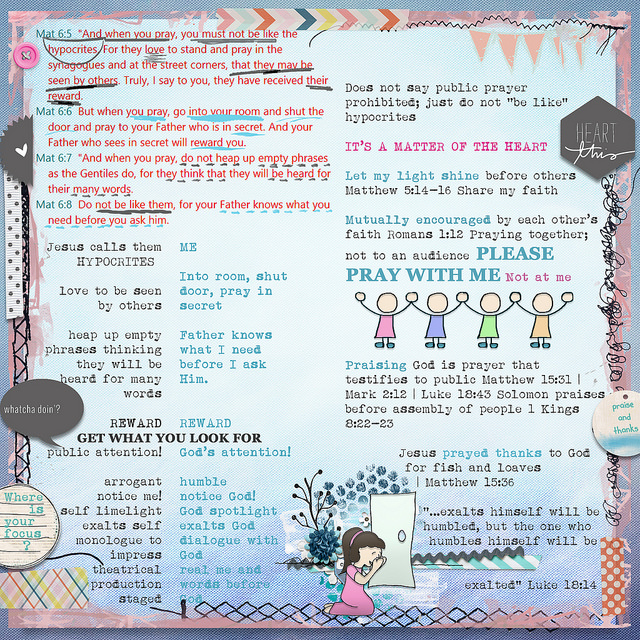 Mat 6:5 "And when you pray, you must not be like the
hypocrites. For they love to stand and pray in the
synagogues and at the street corners, that they may be
seen by others. Truly, I say to you, they have received their
reward.
Mat 6:6 But when you pray, go into your room and shut the
door and pray to your Father who is in secret. And your
Father who sees in secret will reward you.
Mat 6:7 "And when you pray, do not heap up empty phrases
as the Gentiles do, for they think that they will be heard for
their many words.
Mat 6:8 Do not be like them, for your Father knows what you
need before you ask him.
Jesus calls them ME
HYPOCRITES
Into room, shut
love to be seen door, pray in
by others secret
heap up empty Father knows
phrases thinking what I need
they will be before I ask
heard for many Him.
words
whatcha doin'?
REWARD REWARD
GET WHAT YOU LOOK FOR
public attention! God's attention!
arrogant humble
notice me! notice God!
self limelight God spotlight
exalts self exalts God
monologue to dialogue with
impress God
theatrical real me and
production words before
staged God
Where
is
your
focus
?
Does not say public prayer
prohibited; just do not "be like"
hypocrites
HEART
this
IT'S A MATTER OF THE HEART
Let my light shine before others
Matthew 5:14-16 Share my faith
Mutually encouraged by each other's
faith Romans 1:12 Praying together;
not to an audience PLEASE
PRAY WITH ME Not at me
Praising God is prayer that
testifies to public Matthew 15:31 |
Mark 2:12 | Luke 18:43 Solomon praises
before assembly of people 1 Kings
8:22-23
praise
and
thanks
Jesus prayed thanks to God
for fish and loaves
| Matthew 15:36
"...exalts himself will be
humbled, but the one who
humbles himself will be
exalted" Luke 18:14